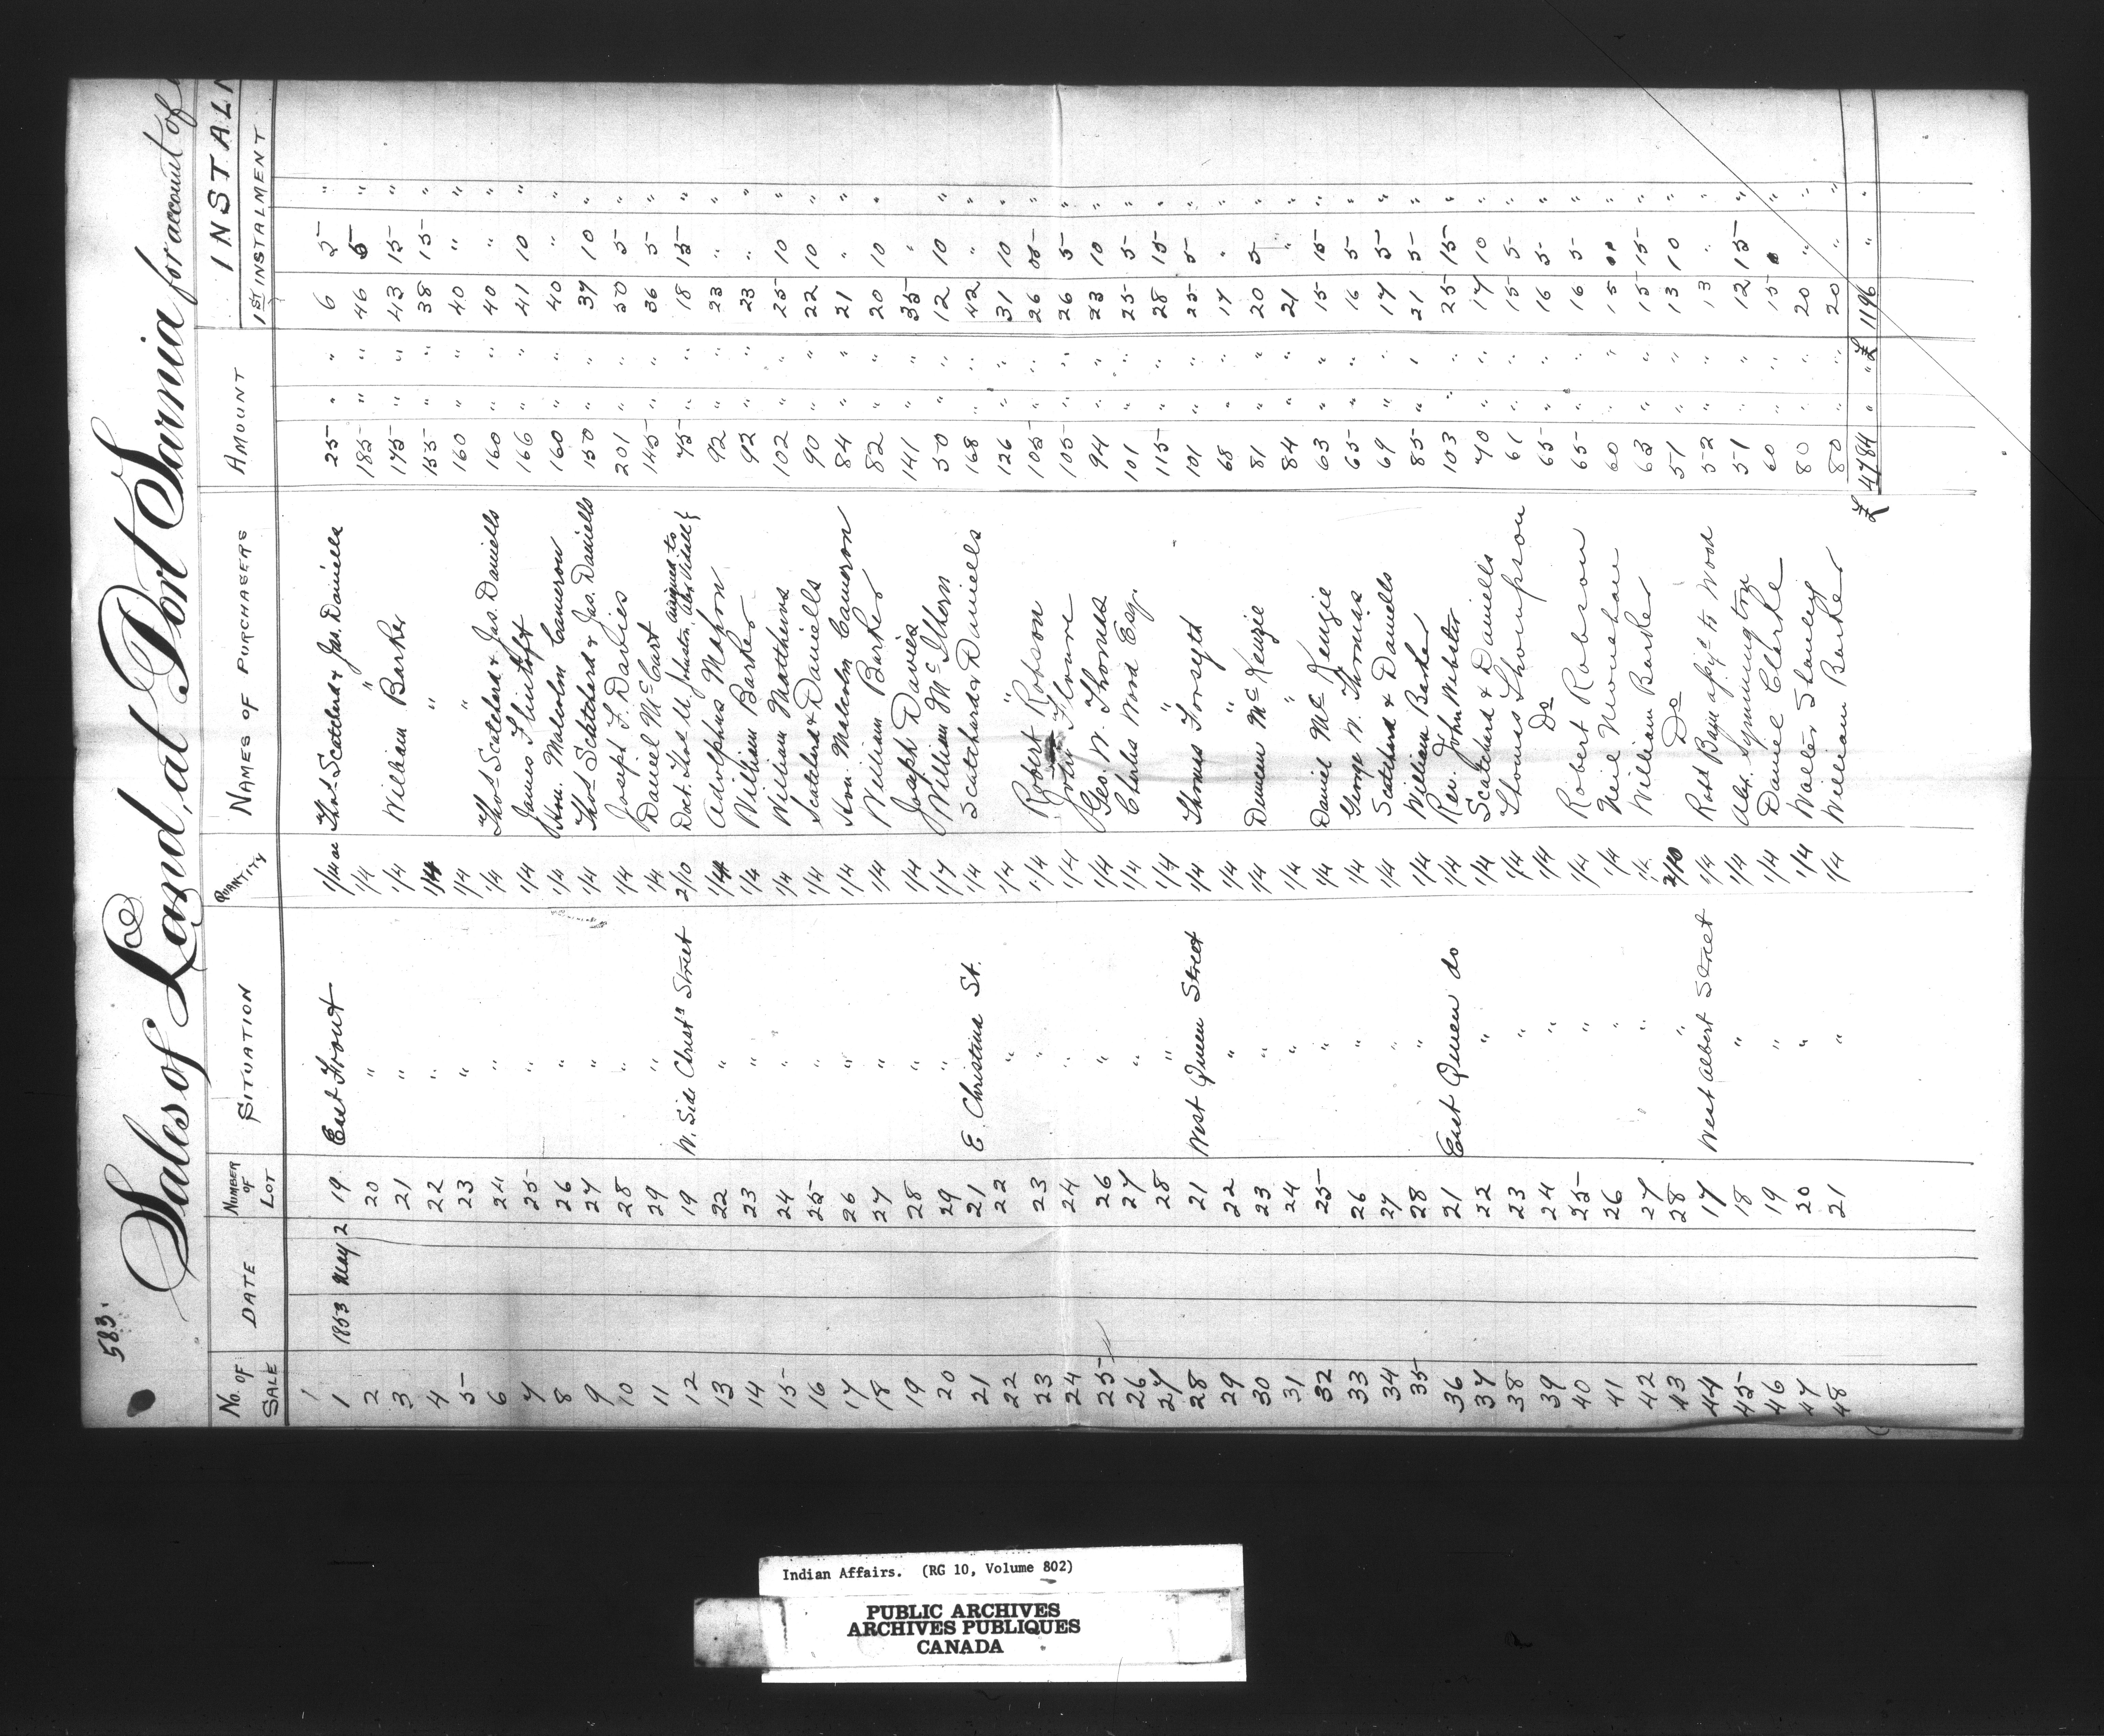 583.
Sales of Land, at Port Sarnia for account of
No. of SALE DATE NUMBER OF LOT SITUATION QUANTITY NAMES OF PURCHASERS AMOUNT INSTALM
1ST INSTALMENT
1 1853 May 2 19 East Front 1/4 ac Thos Scatcherd & Jas. Daniells 25 " " 6 5 "
2 20 " 1/4 " 185 " " 46 5 "
3 21 " 1/4 William Barker 175 " " 43 15 "
4 22 " 1/4 " 155 " " 38 15 "
5 23 " 1/4 " 160 " " 40 " "
6 24 " 1/4 Thos Scatcherd & Jas. Daniells 160 " " 40 " "
7 25 " 1/4 James Flintoft 166 " " 41 10 "
8 26 " 1/4 Hon. Malcolm Cameron 160 " " 40 " "
9 27 " 1/4 Thos Scatcherd & Jas. Daniells 150 " " 37 10 "
10 28 " 1/4 Joseph F. Davies 201 " " 50 5 "
11 29 " 1/4 Daniel McCart 145 " " 36 5 "
12 19 W. Side Christa Street 2/10 Doct. Thos W. Johnston, assigned to Alex Vidall 75 " " 18 15 "
13 22 " 1/4 Adolphus Mahon 92 " " 23 " "
14 23 " 1/4 William Barker 92 " " 23 " "
15 24 " 1/4 William Matthews 102 " " 25 10 "
16 25 " 1/4 Scatcherd & Daniells 90 " " 22 10 "
17 26 " 1/4 Hon. Malcolm Cameron 84 " " 21 " "
18 27 " 1/4 William Barker 82 " " 20 10 "
19 28 " 1/4 Joseph Davies 141 " " 35 " "
20 29 " 1/4 William McIlhern 50 " " 12 10 "
21 21 E. Christina St. 1/4 Scatcherd & Daniells 168 " " 42 " "
22 22 " 1/4 " 126 " " 31 10 "
23 23 " 1/4 Robert Robson 105 " " 26 5 "
24 24 " 1/4 105 " " 26 5 "
25 26 " 1/4 Geo. W. Thomas 94 " " 23 10 "
26 27 " 1/4 Charles Wood Esq. 101 " " 25 5 "
27 28 " 1/4 " 115 " " 28 15 "
28 21 West Queen Street 1/4 Thomas Forsyth 101 " " 25 5 "
29 22 " 1/4 " 68 " " 17 " "
30 23 " 1/4 Duncan McKenzie 81 " " 20 5 "
31 24 " 1/4 " 84 " " 21 " "
32 25 " 1/4 Daniel McKenzie 63 " " 15 15 "
33 26 " 1/4 George W. Thomas 65 " " 16 5 "
34 27 " 1/4 Scatcherd & Daniells 69 " " 17 5 "
35 28 " 1/4 William Barker 85 " " 21 5 "
36 21 East Queen do 1/4 Rev. John Webster 103 " " 25 15 "
37 22 " 1/4 Scatcherd & Daniells 70 " " 17 10 "
38 23 " 1/4 Thomas Thompson 61 " " 15 5 "
39 24 " 1/4 Do 65 " " 16 5 "
40 25 " 1/4 Robert Robson 65 " " 16 5 "
41 26 " 1/4 Neil Monoghan 60 " " 15 " "
42 27 " 1/4 William Barker 63 " " 15 15 "
43 28 " 2/10 Do 51 " " 13 10 "
44 17 West Albert Street 1/4 Robt to Wood 52 " " 13 " "
45 18 " 1/4 Alex. Symmington 51 " " 12 15 "
46 19 " 1/4 Daniel Clarke 60 " " 15 " "
47 20 " 1/4 Walter Stanley 80 " " 20 " "
48 21 " 1/4 William Barker 80 " " 20 " "
£ 4784 " " £ 1196 " "
Indian Affairs. (RG 10, Volume 802)
PUBLIC ARCHIVES
ARCHIVES PUBLIQUES
CANADA